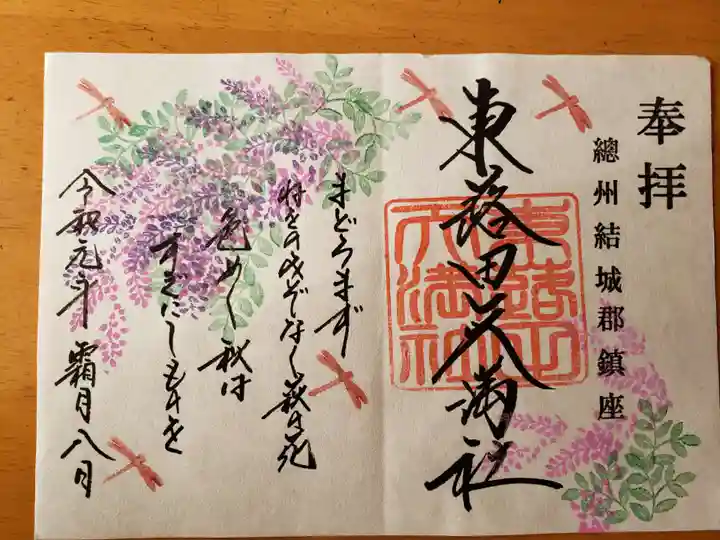 奉拝
總州結城郡鎮座
東蕗田天満社
東蕗田天満社
まどろまず
ねをのみぞなく萩の花
色めく秋は
すぎにしものを
令和元年 霜月八日